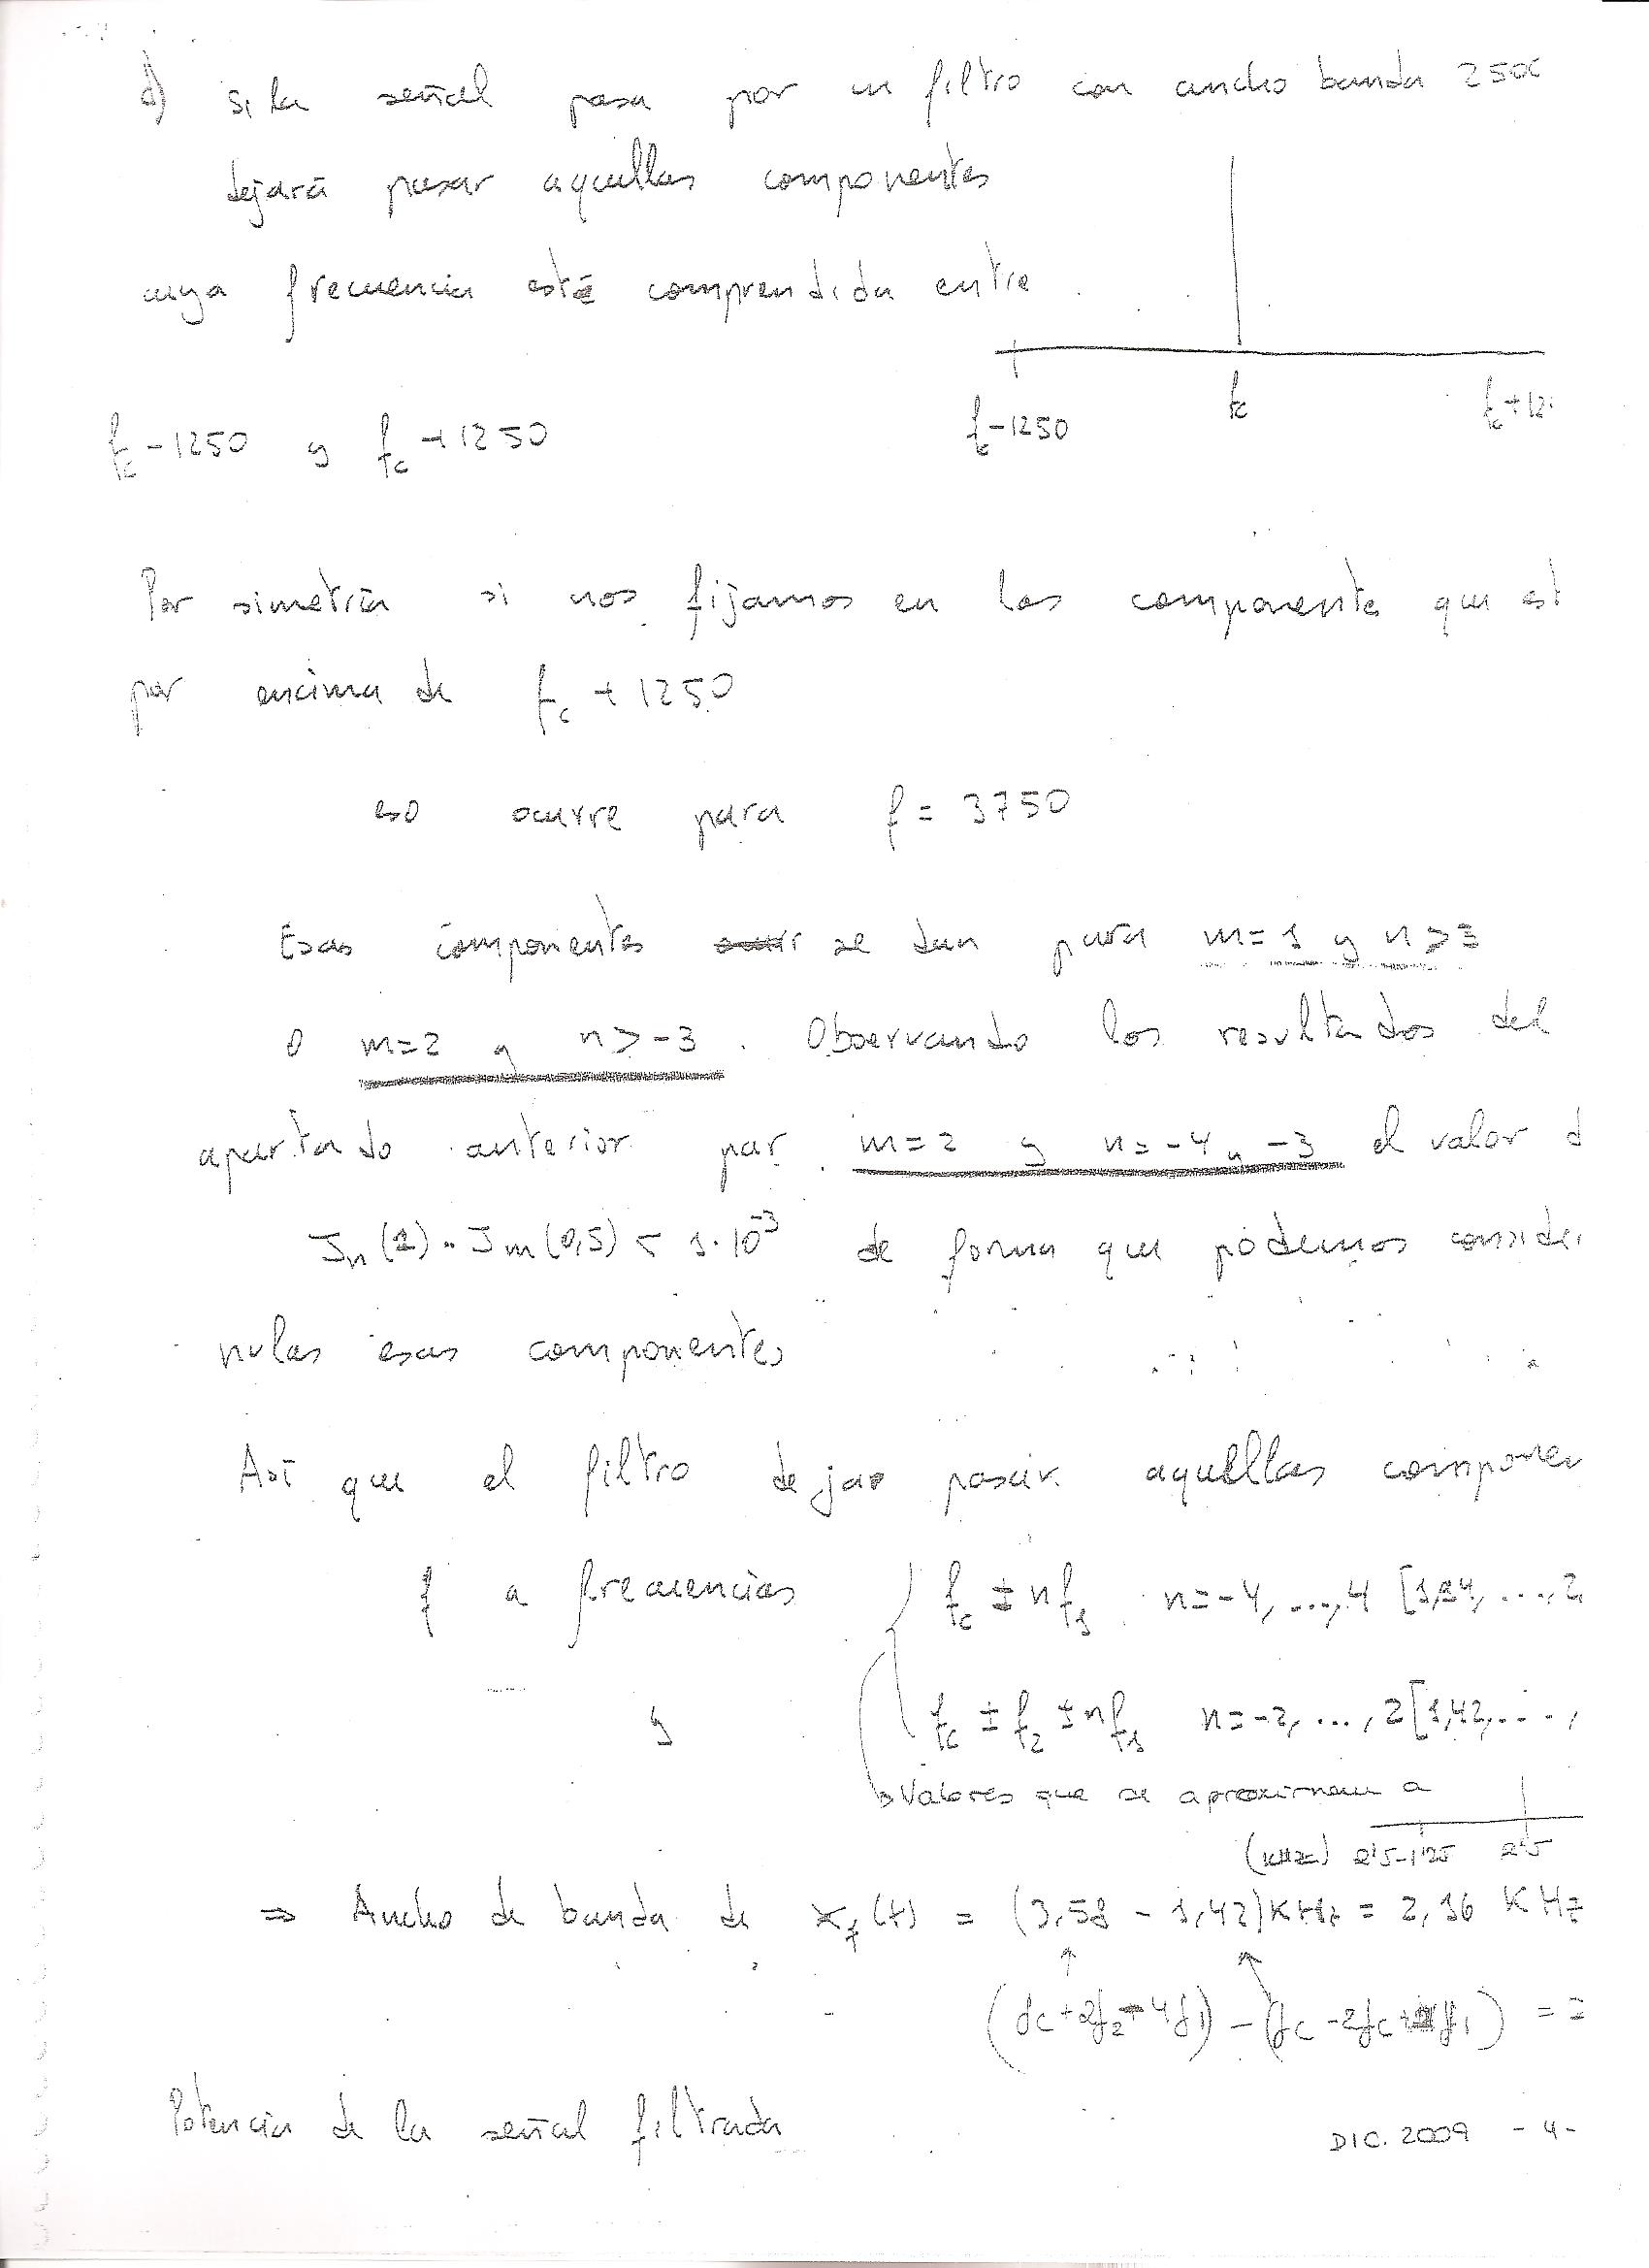 d) Si la señal pasa por un filtro con ancho banda 250
dejará pasar aquellas componentes
cuya frecuencia esté comprendida entre
fc-1250 y fc+1250
fc-1250 fc fc+12
Por simetría si nos fijamos en las componente que est
por encima de fc + 1250
eso ocurre para f = 3750
Esas componentes se dan para m=1 y n>3
O m=2 y n>-3. Observando los resultados del
apartado anterior par m=2 y n=-4 y -3 el valor d
Jn(2)·Jm(0,5) < 1·10^-3 de forma que podemos conside
nulas esas componentes
Así que el filtro dejar pasar aquellas componen
f a frecuencias fc ± nf1 n=-4, ...,4 [1,84, ..., 2
y fc ± f2 ± nf1 n=-2, ..., 2 [1,42, ...,
Valores que se aproximan a
(KHz) 2'5-1'25 2'5
⇒ Ancho de banda de xf(t) = (3,58 - 1,42)KHz = 2,16 KHz
(fc+2f2-4f1) - (fc-2fc+4f1) =
Potencia de la señal filtrada
DIC. 2009 -4-